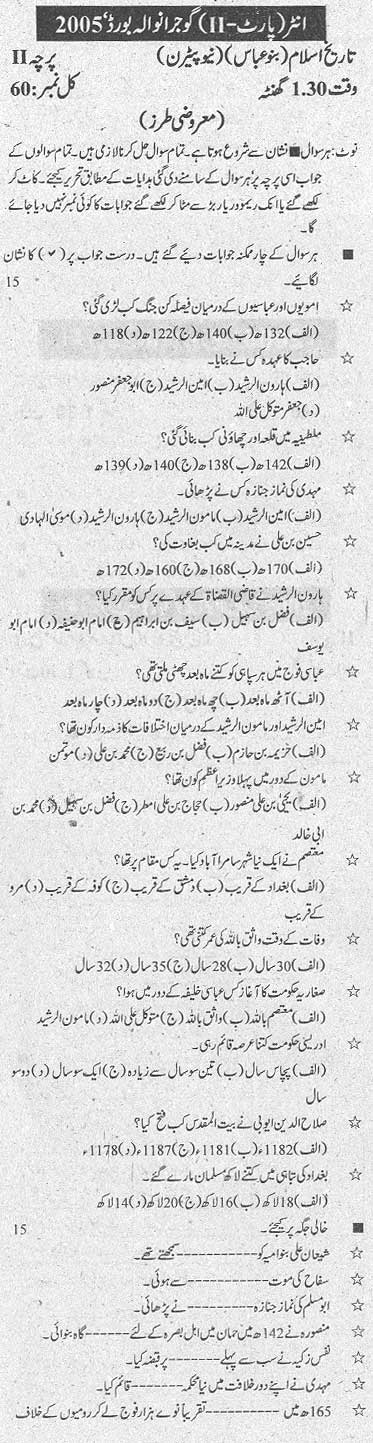 انٹر (پارٹ-II) گوجرانوالہ بورڈ، 2005
تاریخ اسلام (بنو عباس) (نیو پیٹرن) پرچہ II
وقت 1.30 گھنٹہ کل نمبر: 60
(معروضی طرز)
نوٹ: ہر سوال ■ نشان سے شروع ہوتا ہے۔ تمام سوال حل کرنا لازمی ہیں۔ تمام سوالوں کے
جواب اسی پرچہ پر ہر سوال کے سامنے دی گئی ہدایات کے مطابق تحریر کیجئے۔ کاٹ کر
لکھے گئے یا انک ریموور یا ربڑ سے مٹا کر لکھے گئے جوابات کا کوئی نمبر نہیں دیا جائے
گا۔
■ ہر سوال کے چار ممکنہ جوابات دیئے گئے ہیں۔ درست جواب پر (✓) کا نشان
لگائیے۔ 15
☆ امویوں اور عباسیوں کے درمیان فیصلہ کن جنگ کب لڑی گئی؟
(الف) 132ھ (ب) 140ھ (ج) 122ھ (د) 118ھ
☆ حاجب کا عہدہ کس نے بنایا۔
(الف) ہارون الرشید (ب) امین الرشید (ج) ابو جعفر منصور
(د) جعفر متوکل علی اللہ
☆ ملطیفیہ میں قلعہ اور چھاؤنی کب بنائی گئی؟
(الف) 142ھ (ب) 138ھ (ج) 140ھ (د) 139ھ
☆ مہدی کی نماز جنازہ کس نے پڑھائی۔
(الف) امین الرشید (ب) مامون الرشید (ج) ہارون الرشید (د) موسیٰ الہادی
☆ حسین بن علی نے مدینہ میں کب بغاوت کی؟
(الف) 170ھ (ب) 168ھ (ج) 160ھ (د) 172ھ
☆ ہارون الرشید نے قاضی القضاة کے عہدے پر کس کو مقرر کیا؟
(الف) فضل بن سہیل (ب) سیف بن ابراہیم (ج) امام ابو حنیفہ (د) امام ابو
یوسف
☆ عباسی فوج میں ہر سپاہی کو کتنے ماہ بعد چھٹی ملتی تھی؟
(الف) آٹھ ماہ بعد (ب) چھ ماہ بعد (ج) دو ماہ بعد (د) چار ماہ بعد
☆ امین الرشید اور مامون الرشید کے درمیان اختلافات کا ذمہ دار کون تھا؟
(الف) خزیمہ بن حازم (ب) فضل بن ربیع (ج) محمد بن علی (د) موتمن
☆ مامون کے دور میں پہلا وزیر اعظم کون تھا؟
(الف) یحییٰ بن علی منصور (ب) حجاج بن علی امطر (ج) فضل بن سہیل (د) محمد بن
ابی خالد
☆ معتصم نے ایک نیا شہر سامرا آباد کیا۔ یہ کس مقام پر تھا؟
(الف) بغداد کے قریب (ب) دمشق کے قریب (ج) کوفہ کے قریب (د) مرو
کے قریب
☆ وفات کے وقت واثق باللہ کی عمر کتنی تھی؟
(الف) 30 سال (ب) 28 سال (ج) 35 سال (د) 32 سال
☆ صغاریہ حکومت کا آغاز کس عباسی خلیفہ کے دور میں ہوا؟
(الف) معتصم باللہ (ب) واثق باللہ (ج) متوکل علی اللہ (د) مامون الرشید
☆ ادریسی حکومت کتنا عرصہ قائم رہی۔
(الف) پچاس سال (ب) تین سو سال سے زیادہ (ج) ایک سو سال (د) دو سو
سال
☆ صلاح الدین ایوبی نے بیت المقدس کب فتح کیا؟
(الف) 1182ء (ب) 1181ء (ج) 1187ء (د) 1178ء
☆ بغداد کی تباہی میں کتنے لاکھ مسلمان مارے گئے۔
(الف) 18 لاکھ (ب) 16 لاکھ (ج) 20 لاکھ (د) 14 لاکھ
■ خالی جگہ پر کیجئے۔ 15
☆ شیعان علی بنو امیہ کو ----------- سمجھتے تھے۔
☆ سفاح کی موت ----------- سے ہوئی۔
☆ ابو مسلم کی نماز جنازہ ---------- نے پڑھائی۔
☆ منصورہ نے 142ھ میں حمان میں اہل بصرہ کے لئے ------ گاہ بنوائی۔
☆ نفس زکیہ نے سب سے پہلے ------ پر قبضہ کیا۔
☆ مہدی نے اپنے دور خلافت میں نیا محکمہ ------- قائم کیا۔
☆ 165ھ میں ---------- تقریباً نوے ہزار فوج لے کر رومیوں کے خلاف